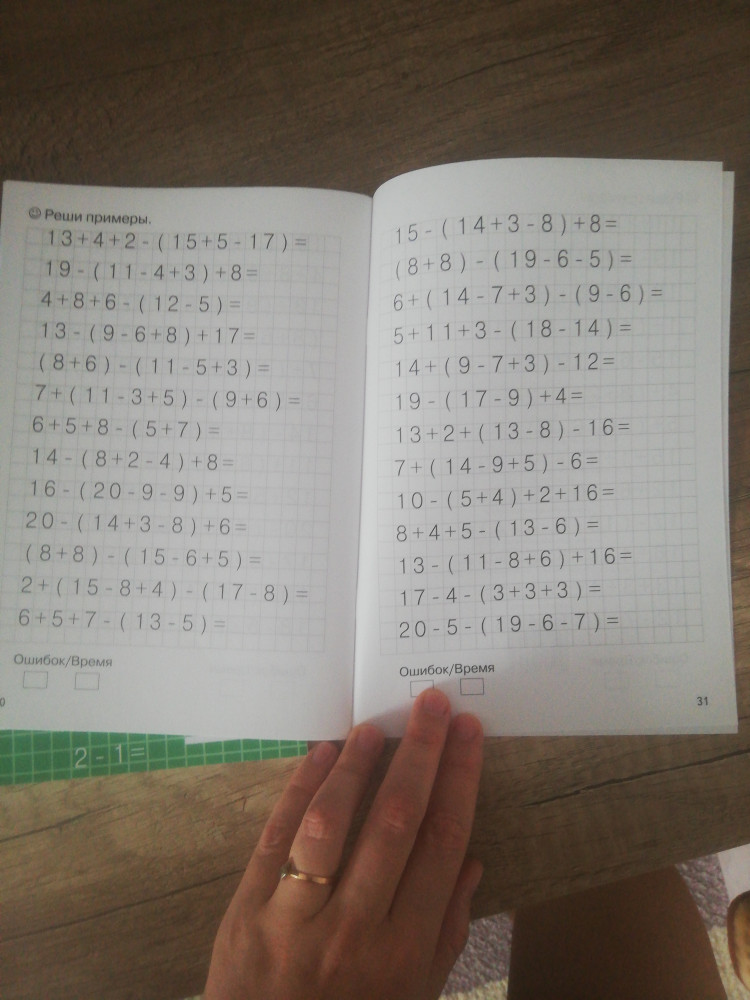 Реши примеры.
13+4+2-(15+5-17)=
19-(11-4+3)+8=
4+8+6-(12-5)=
13-(9-6+8)+17=
(8+6)-(11-5+3)=
7+(11-3+5)-(9+6)=
6+5+8-(5+7)=
14-(8+2-4)+8=
16-(20-9-9)+5=
20-(14+3-8)+6=
(8+8)-(15-6+5)=
2+(15-8+4)-(17-8)=
6+5+7-(13-5)=
Ошибок/Время
0
15-(14+3-8)+8=
(8+8)-(19-6-5)=
6+(14-7+3)-(9-6)=
5+11+3-(18-14)=
14+(9-7+3)-12=
19-(17-9)+4=
13+2+(13-8)-16=
7+(14-9+5)-6=
10-(5+4)+2+16=
8+4+5-(13-6)=
13-(11-8+6)+16=
17-4-(3+3+3)=
20-5-(19-6-7)=
Ошибок/Время
31
2-1=